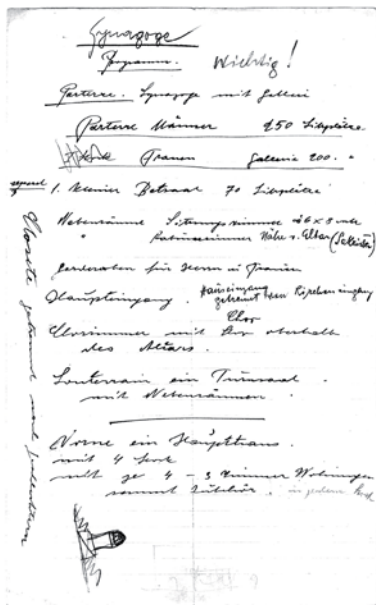 Synagoge
Programm. Wichtig!
Parterre. Synagoge mit Gallerie
Parterre Männer 250 Sitzplätze
Frauen Gallerie 200. "
separat 1. kleiner Betsaal 70 Sitzplätze
Nebenräume Sitzungszimmer 6 x 8
" Rabinerzimmer Nähe v. (Sekretär)
Garderoben für Herren u Frauen
Haupteingang. Hauseingang
getrennt vom Kircheneingang
Chor
Chorzimmer mit oberhalb
des Altars.
Souterrain ein Turnsaal
mit Nebenräumen
Vorne ein Haupttrans.
mit 4 Stock
mit je 4 - 3 Zimmer Wohnungen
sammt Zubehör. in jedem Stock
Closette getrennt nach